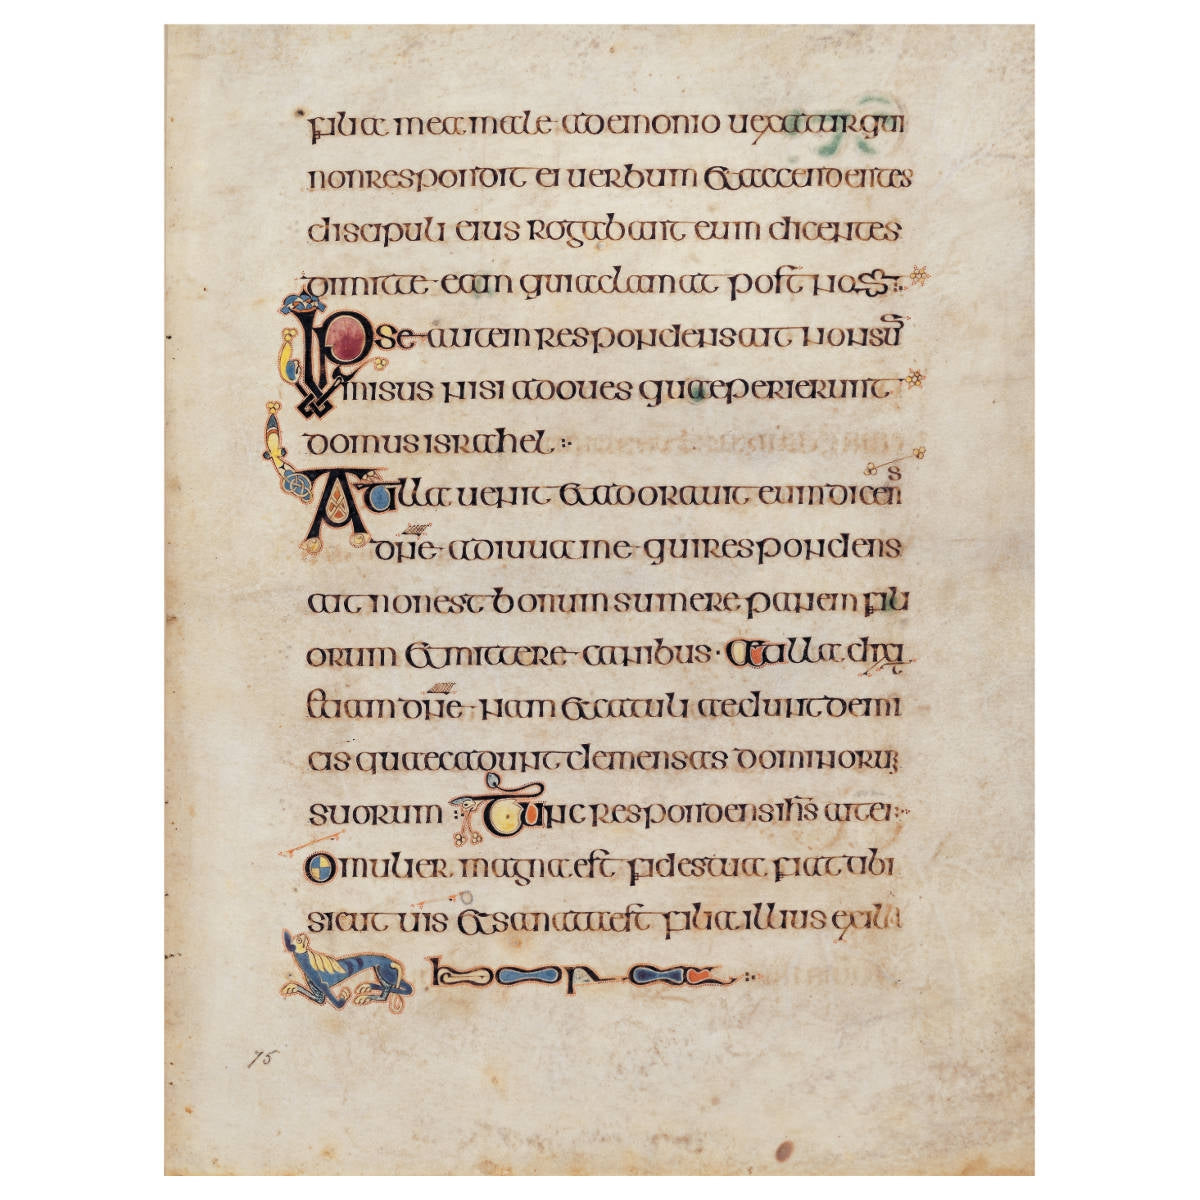 filia mea male ademonio uexatur qui
non respondit ei uerbum & accendentes
discipuli eius rogabant eum dicentes
dimitte eam quia clamat post nos
Ipse autem respondens ait non sum̄
misus nisi adoues quae perierunt
domus israhel :·
At illa uenit & adorauit eum dicens
dn̄e adiuua me qui respondens
ait non est bonum sumere panem fili
orum & mittere canibus · At illa dixi
etiam dn̄e nam & catuli aedunt demi
cis quae cadunt demensas dominorum
suorum :· Tunc respondens ih̄s ait ei :·
O mulier magna est fides tua fiat tibi
sicut uis & sanata est filia illius ex illa
hora :·
75